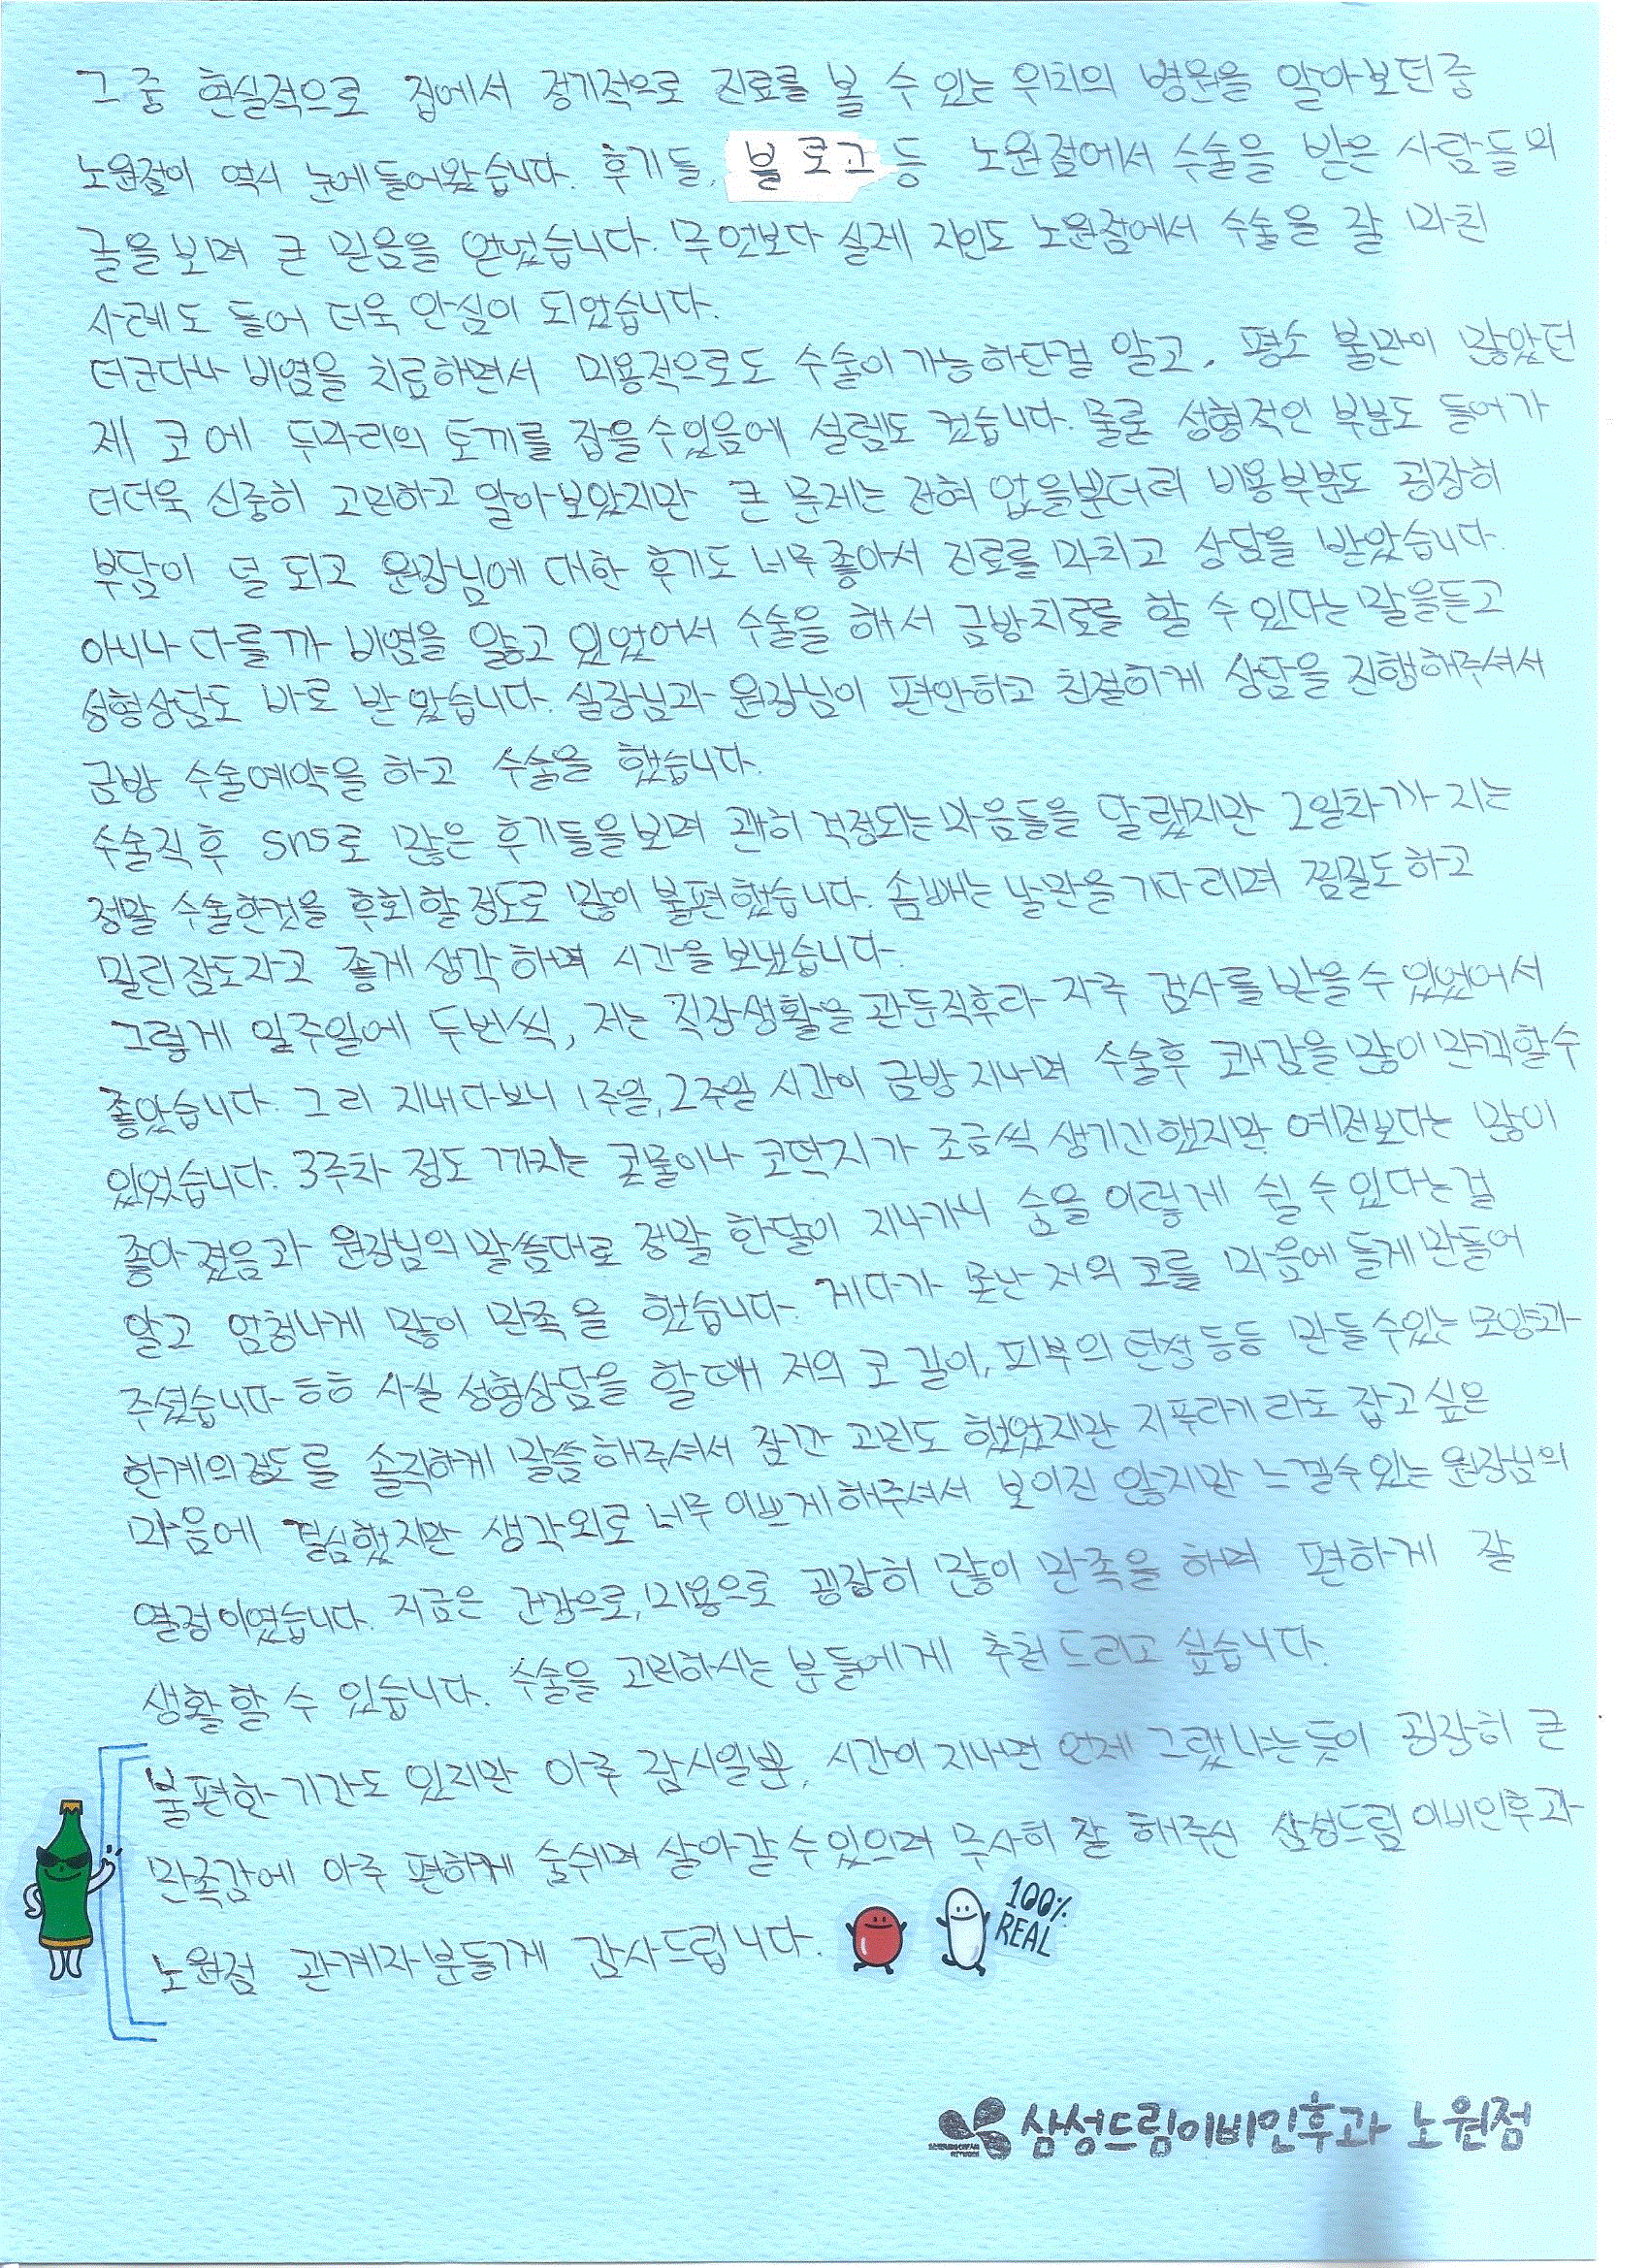 그 중 현실적으로 집에서 정기적으로 진료를 볼 수 있는 위치의 병원을 알아보던 중
노원점이 역시 눈에 들어왔습니다. 후기들, 블로그 등 노원점에서 수술을 받은 사람들의
글을 보며 큰 믿음을 얻었습니다. 무엇보다 실제 지인도 노원점에서 수술을 잘 마친
사례도 들어 더욱 안심이 되었습니다.
더군다나 비염을 치료하면서 미용적으로도 수술이 가능하단걸 알고, 평소 불만이 많았던
제 코에 두마리의 토끼를 잡을 수 있음에 설렘도 컸습니다. 물론 성형적인 부분도 들어가
더더욱 신중히 고민하고 알아보았지만 큰 문제는 전혀 없을뿐더러 비용부분도 굉장히
부담이 덜 되고 원장님에 대한 후기도 너무 좋아서 진료를 마치고 상담을 받았습니다.
아니나 다를까 비염을 앓고 있었어서 수술을 해서 금방치료를 할 수 있다는 말을듣고
성형상담도 바로 받았습니다. 실장님과 원장님이 편안하고 친절하게 상담을 진행해주셔서
금방 수술예약을 하고 수술을 했습니다.
수술직후 sns로 많은 후기들을 보며 괜히 걱정되는 마음들을 달랬지만 2일차까지는
정말 수술한것을 후회할 정도로 많이 불편했습니다. 솜빼는 날만을 기다리며 찜질도하고
밀린잠도자고 좋게 생각하며 시간을 보냈습니다.
그렇게 일주일에 두번씩, 저는 직장생활을 관둔직후라 자주 검사를 받을 수 있었어서
좋았습니다. 그리 지내다보니 1주일, 2주일 시간이 금방 지나며 수술후 쾌감을 많이 만끽할수
있었습니다. 3주차 정도 까지는 콧물이나 코딱지가 조금씩 생기긴했지만 예전보다는 많이
좋아졌음과 원장님의 말씀대로 정말 한달이 지나가니 숨을 이렇게 쉴 수 있다는걸
알고 엄청나게 많이 만족을 했습니다. 게다가 못난 저의 코를 마음에 들게 만들어
주셨습니다 ㅎㅎ 사실 성형상담을 할때 저의 코 길이, 피부의 탄성 등등 만들 수있는 모양과
한계의정도를 솔직하게 말씀해주셔서 잠깐 고민도 했었지만 지푸라기라도 잡고싶은
마음에 결심했지만 생각외로 너무 이쁘게해주셔서 보이진 않지만 느낄수있는 원장님의
열정이였습니다. 지금은 건강으로, 미용으로 굉장히 많이 만족을 하며 편하게 잘
생활할 수 있습니다. 수술을 고려하시는 분들에게 추천드리고 싶습니다.
불편한 기간도 있지만 아주 잠시일뿐, 시간이 지나면 언제 그랬냐는듯이 굉장히 큰
만족감에 아주 편하게 숨쉬며 살아갈 수있으며 무사히 잘 해주신 삼성드림이비인후과
노원점 관계자분들께 감사드립니다.
100% REAL
삼성드림이비인후과 노원점